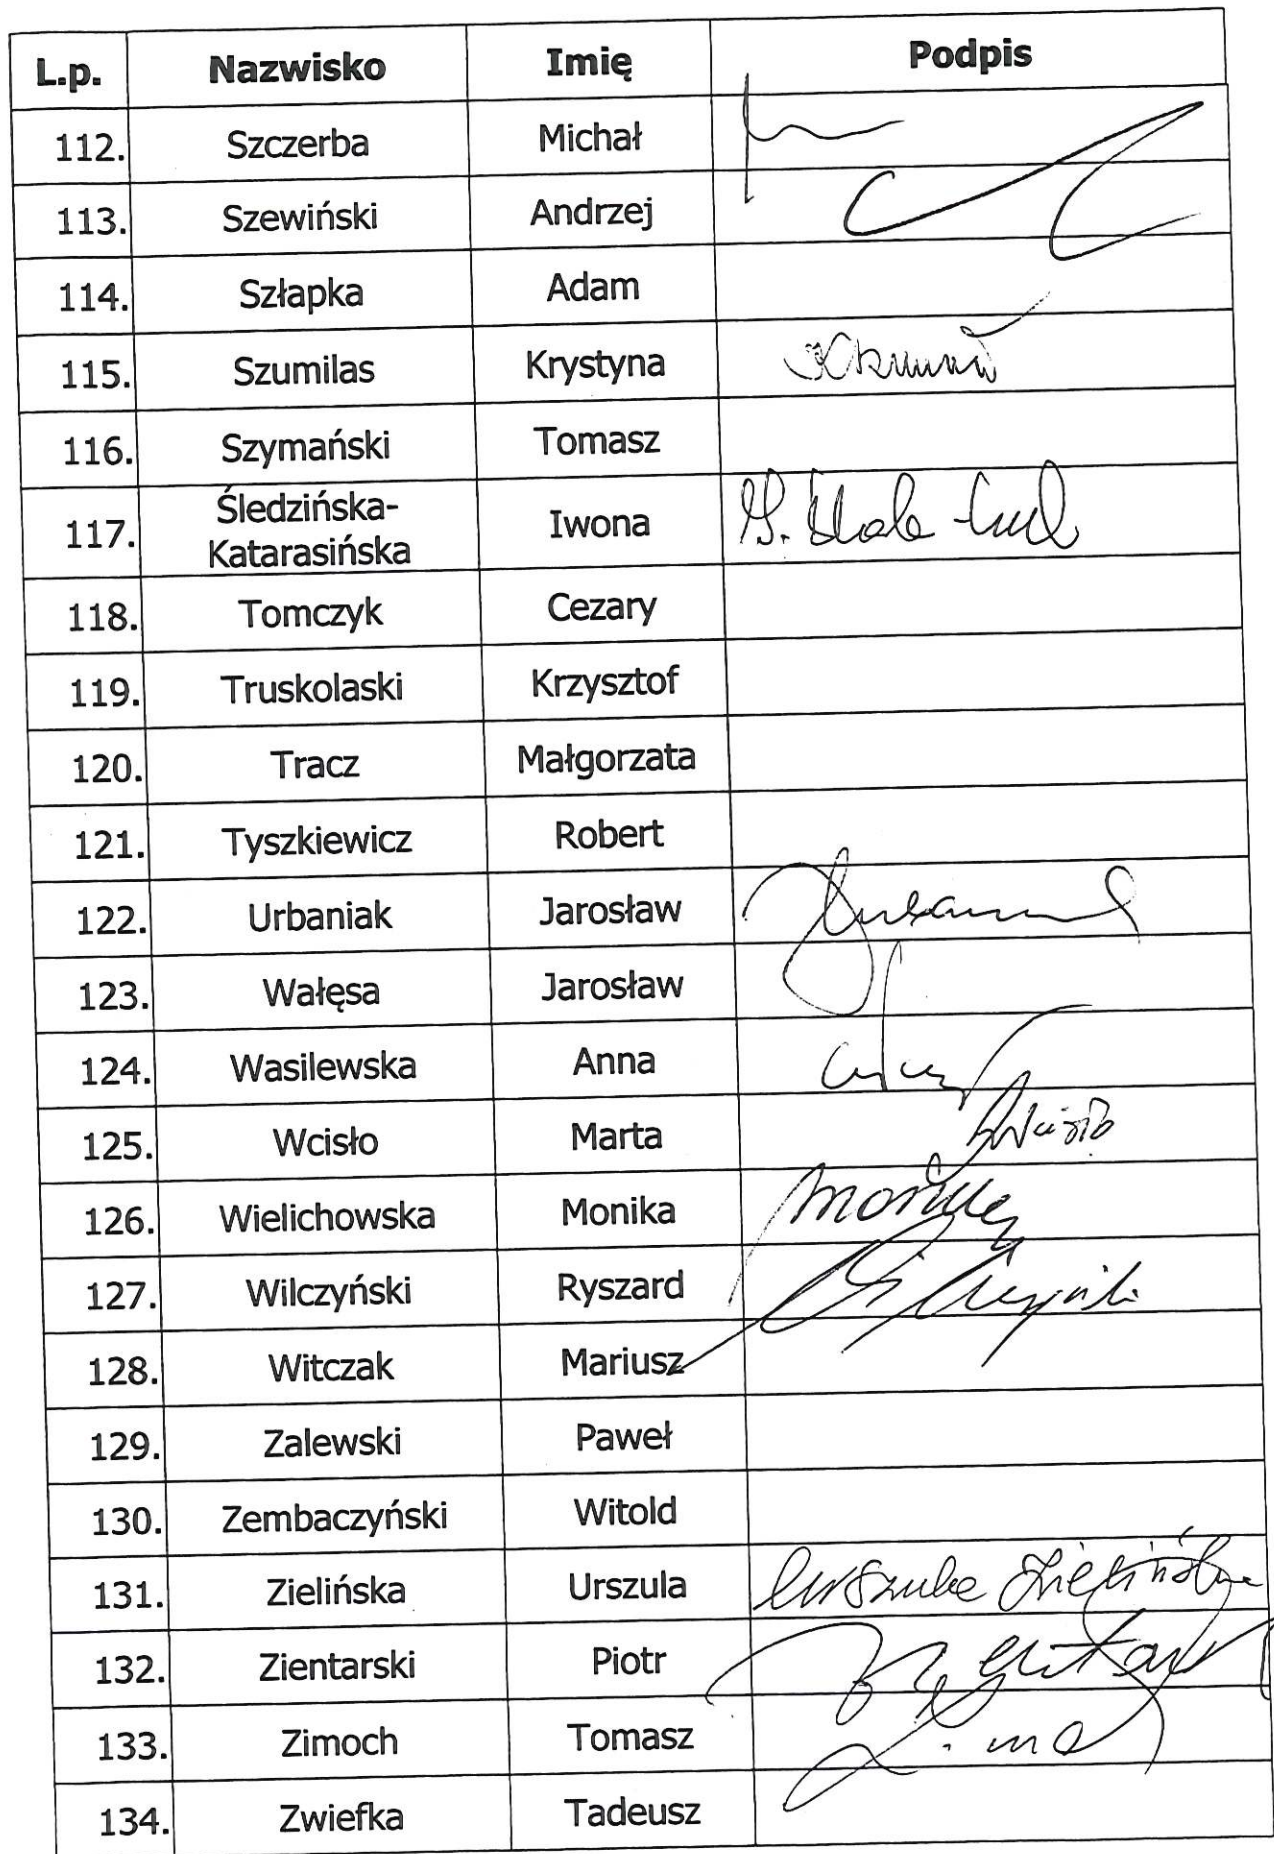 L.p. Nazwisko Imię Podpis
112. Szczerba Michał
113. Szewiński Andrzej
114. Szłapka Adam
115. Szumilas Krystyna
116. Szymański Tomasz
117. Śledzińska-
Katarasińska Iwona
118. Tomczyk Cezary
119. Truskolaski Krzysztof
120. Tracz Małgorzata
121. Tyszkiewicz Robert
122. Urbaniak Jarosław
123. Wałęsa Jarosław
124. Wasilewska Anna
125. Wcisło Marta
126. Wielichowska Monika
127. Wilczyński Ryszard
128. Witczak Mariusz
129. Zalewski Paweł
130. Zembaczyński Witold
131. Zielińska Urszula Urszula Zielińska
132. Zientarski Piotr
133. Zimoch Tomasz
134. Zwiefka Tadeusz